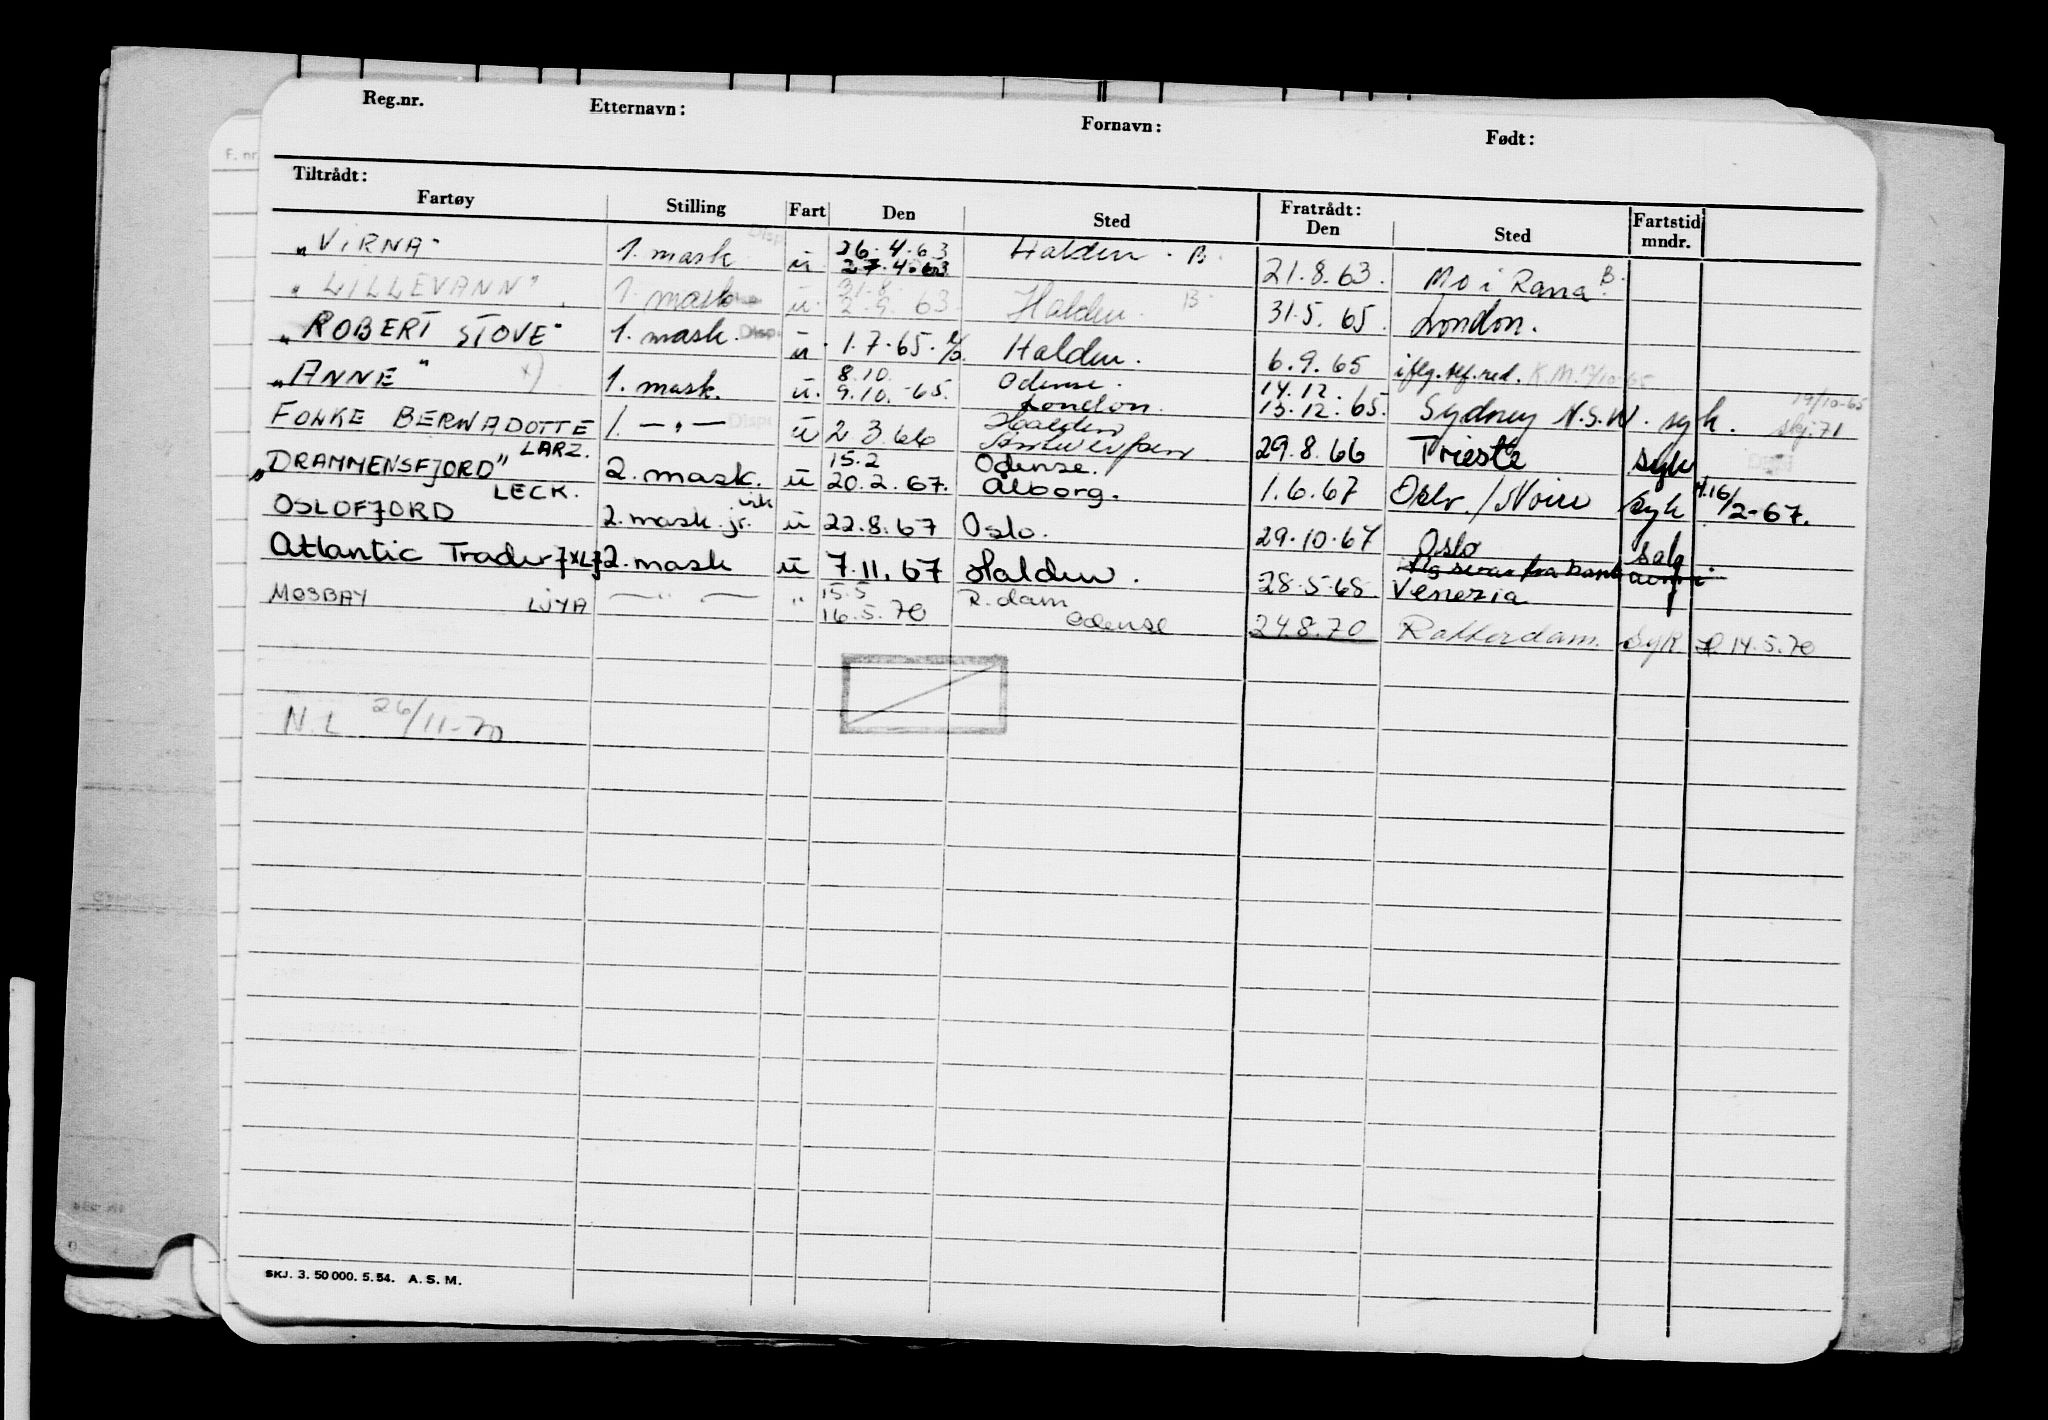 Reg.nr. Etternavn: Fornavn: Født:
Tiltrådt: Fratrådt:
Fartøy Stilling Fart Den Sted Den Sted Fartstid mndr.
"VIRNA" 1. mask ü 26.4.63 27.4.63 Halden. B. 21.8.63. Mo i Rana B.
"LILLEVANN" 1. mask ü. 31.8. 2.9. 63 Halden. B. 31.5. 65. London.
"ROBERT STOVE" 1. mask. Disp. ü 1.7.65. Halden. 6.9.65 K.M. 19/10-65
"ANNE" x) 1. mask. ü. 8.10. 9.10.-65. Odense. London. 14.12. 15.12.65. Sydney N.S.W. syk. skj. 71
FOLKE BERNADOTTE LARZ. 1. —"— ü 2 3 66 Halden Antwerpen 29.8.66 Trieste syk
"DRAMMENSFJORD" LECK. 2. mask. ü 15.2 20.2.67. Odense. Ålborg. 1.6.67 Oslo syk H.16/2-67.
OSLOFJORD 2. mask. jr. ü 22.8.67 Oslo. 29.10.67 Oslo salg
Atlantic Trader JXLJ 2. mask ü 7.11.67 Halden. 28.5.68 Venezia
MOSBAY LJYA —"— " 15.5 16.5.70 R.dam Odense 24.8.70 Rotterdam. Syk 14.5.70
N.L 26/11-70
SKJ. 3. 50 000. 5. 54. A. S. M.